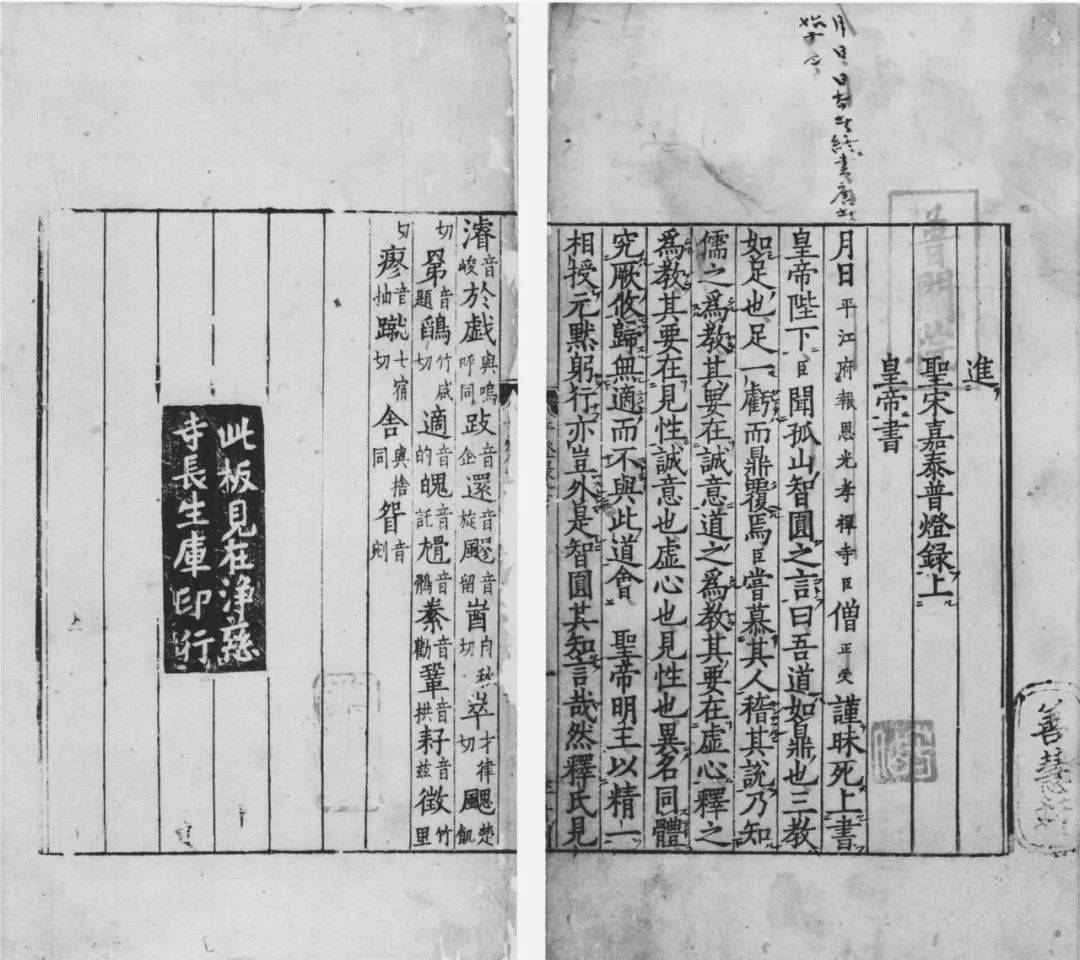 進
聖宋嘉泰普燈録上
皇帝書
月日平江府報恩光孝禪寺臣僧正受謹昧死上書
皇帝陛下臣聞孤山智圓之言曰吾道如鼎也三教
如足也足一虧而鼎覆焉臣嘗慕其人稽其說乃知
儒之爲教其要在誠意道之爲教其要在虛心釋之
爲教其要在見性誠意也虛心也見性也異名同體
究厥攸歸無適而不與此道會 聖帝明王以精一
相授元黙躬行亦豈外是智圓其知言哉然釋氏見
濬音峻於戲與嗚呼同跂音企還音旋飃音留酋自秋切崒才律切颸楚飢
切第音題鵮竹咸切適音的魄音託音鶻豢音勸鞏音拱耔音兹徵竹里
切瘳音抽蹴七宿切舍與捨同眢音剜
此板見在浄慈
寺長生庫印行
善慧軒